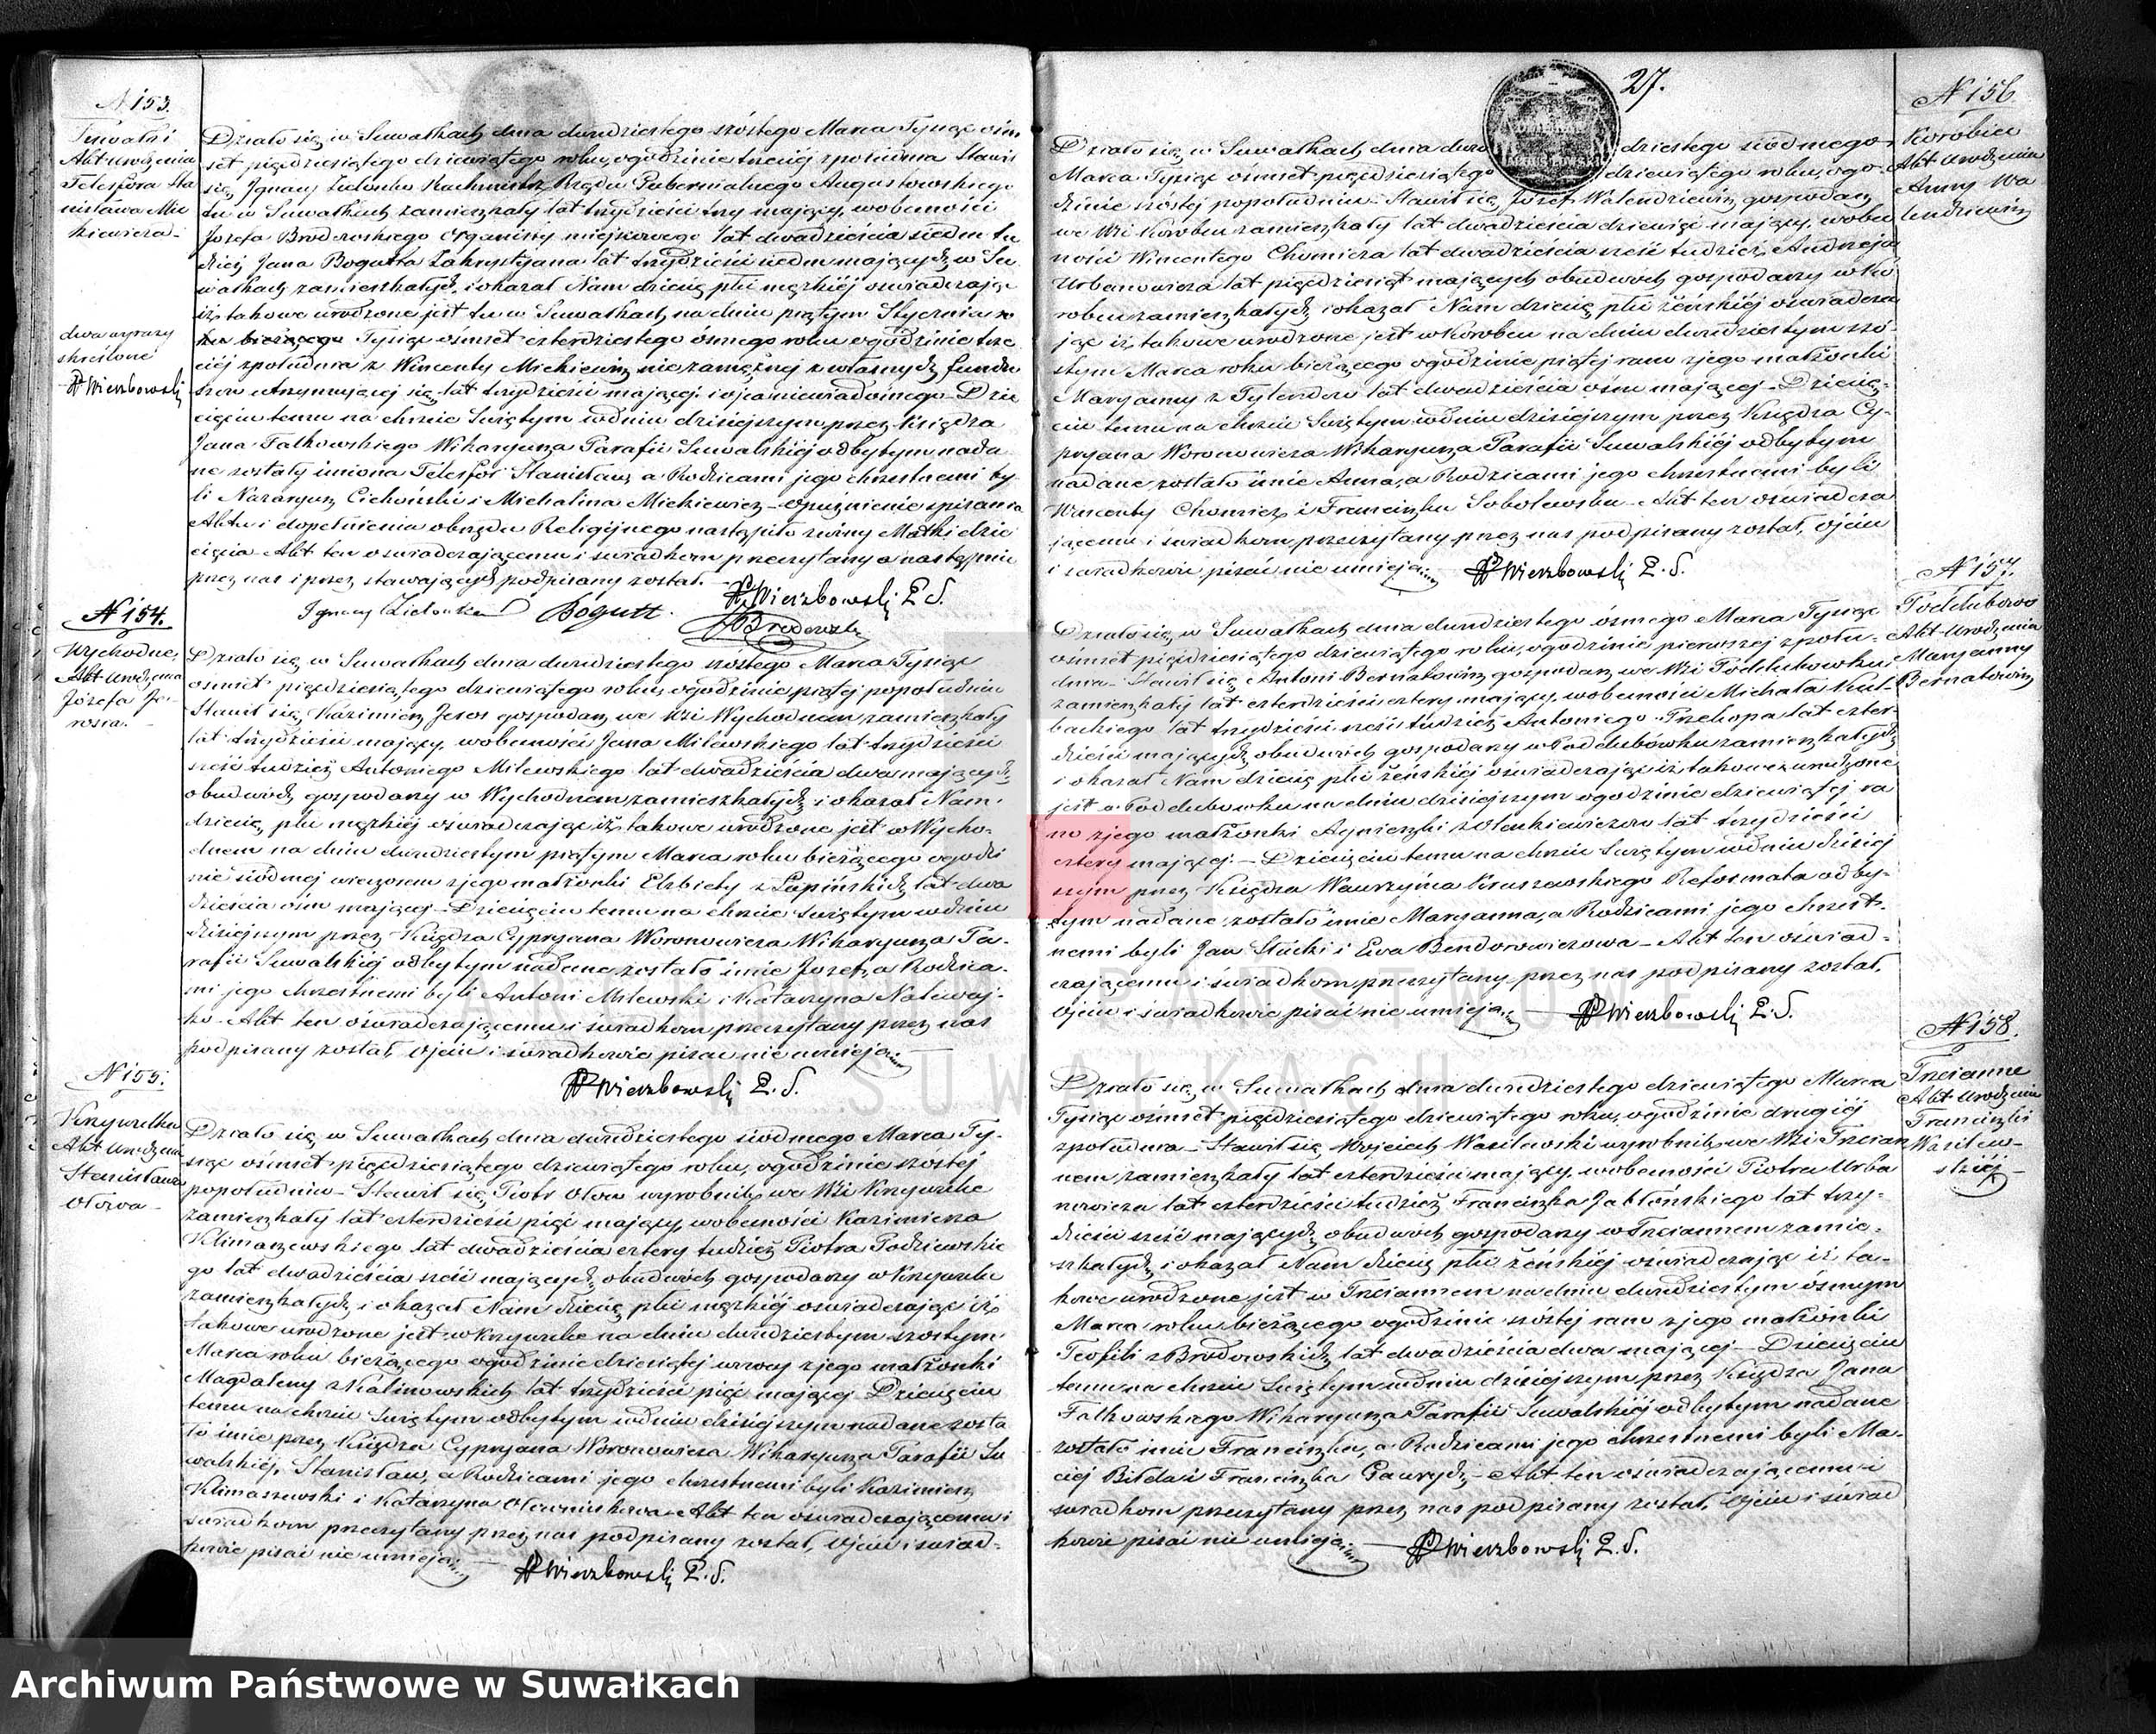 N 153.
Suwałki
Akt urodzenia
Telesfora Sta
nisława Mic
kiewicza.
dwa wyrazy
skreślone
Wierzbowski
Działo się w Suwałkach dnia dwudziestego szóstego Marca Tysiąc ośm
set pięćdziesiątego dziewiątego roku, o godzinie trzeciej z południa Stawił
się, Ignacy Zielonka Rachmistrz Rządu Gubernialnego Augustowskiego
tu w Suwałkach zamieszkały lat trzydzieści trzy mający, w obecności
Józefa Brodowskiego Organisty miejscowego lat dwadzieścia siedm tu
dzież Jana Bogutta Zakrystyana lat trzydzieści siedm mających w Su
wałkach zamieszkałych, i okazał Nam dziecię płci męzkiéj oświadczając
iż takowe urodzone jest tu w Suwałkach na dniu piątym Stycznia ro
ku bieżącego Tysiąc ośmset czterdziestego ósmego roku o godzinie trze
ciéj z południa z Wincenty Mickiewicz niezamężnej z własnych fundu
szow utrzymującej się, lat trzydzieści mającej i ojca niewiadomego. Dzie
cięciu temu na chrzcie Świętym w dniu dzisiejszym przez Księdza
Jana Falkowskiego Wikaryusza Parafii Suwalskiéj odbytym nada
ne zostały imiona Telesfor Stanisław, a Rodzicami jego chrzestnemi by
li Nazaryusz Cichoński i Michalina Mickiewicz – Opóźnienie spisania
Aktu i dopełnienia obrzędu Religijnego nastąpiło z winy Matki dzie
cięcia. Akt ten oświadczającemu i świadkom przeczytany a następnie
przez nas i przez stawających podpisany został.
Wierzbowski P. S.
Ignacy Zielonka Bogutt. Brodowski
N 154.
Wychodne,
Akt urodzenia
Józefa Je-
rosza.
Działo się w Suwałkach dnia dwudziestego szóstego Marca Tysiąc
ośmset pięćdziesiątego dziewiątego roku, o godzinie piątej popołudniu
Stawił się, Kazimierz Jeros gospodarz we Wsi Wychodnem zamieszkały
lat trzydzieści mający, w obecności Jana Milewskiego lat trzydzieści
sześć tudzież Antoniego Milewskiego lat dwadzieścia dwa mających
obudwóch gospodarzy w Wychodnem zamieszkałych, i okazał Nam
dziecię płci męzkiéj oświadczając iż takowe urodzone jest w Wycho-
dnem na dniu dwudziestym piątym Marca roku bieżącego o godzi
nie siódmej wieczorem z jego małżonki Elżbiety z Łapińskich lat dwa
dzieścia ośm mającej. Dziecięciu temu na chrzcie Świętym w dniu
dzisiejszym przez Księdza Cypryana Woronowicza Wikaryusza Pa-
rafii Suwalskiéj odbytym nadane zostało imie Józef, a Rodzica-
mi jego chrzestnemi byli Antoni Milewski i Katarzyna Nalewaj-
ko. Akt ten oświadczającemu i świadkom przeczytany przez nas
podpisany został, Ojciec i świadkowie pisać nie umieją.
Wierzbowski P. S.
N 155.
Krzywulka
Akt urodzenia
Stanisława
Otowa
Działo się w Suwałkach dnia dwudziestego siódmego Marca Ty-
siąc ośmset pięćdziesiątego dziewiątego roku, o godzinie szóstej
popołudniu – Stawił się, Piotr Otow wyrobnik we Wsi Krzywulce
zamieszkały lat czterdzieści pięć mający, w obecności Kazimierza
Klimaszewskiego lat dwadzieścia cztery tudzież Piotra Podziewskie
go lat dwadzieścia sześć mających, obudwóch gospodarzy w Krzywulce
zamieszkałych, i okazał Nam dziecię płci męzkiéj oświadczając iż
takowe urodzone jest w Krzywulce na dniu dwudziestym szóstym
Marca roku bieżącego o godzinie dziesiątej w nocy z jego małżonki
Magdaleny z Kalinowskich lat trzydzieści pięć mającej. Dziecięciu
temu na chrzcie Świętym odbytym w dniu dzisiejszym nadane zosta
ło imie przez Księdza Cypryana Woronowicza Wikaryusza Parafii Su
walskiéj, Stanisław, a Rodzicami jego chrzestnemi byli Kazimierz
Klimaszewski i Katarzyna. Akt ten oświadczającemu i
świadkom przeczytany przez nas podpisany został, Ojciec i świad-
kowie pisać nie umieją.
Wierzbowski P. S.
27.
N 156
Korobiec
Akt urodzenia
Anny Wa
lendziewicz
Działo się w Suwałkach dnia dwudziestego siódmego
Marca Tysiąc ośmset pięćdziesiątego dziewiątego roku, o go-
dzinie szóstej popołudniu. Stawił się, Józef Walendziewicz gospodarz
we Wsi Korobcu zamieszkały lat dwadzieścia dziewięć mający, w obec
ności Wincentego Chomicza lat dwadzieścia sześć tudzież Andrzeja
Urbanowicza lat pięćdziesiąt mających obudwóch gospodarzy w Ko
robcu zamieszkałych, i okazał Nam dziecię płci żeńskiéj oświadcza
jąc iż takowe urodzone jest w Korobcu na dniu dwudziestym szó-
stym Marca roku bieżącego o godzinie piątej rano z jego małżonki
Maryanny z Tylendow lat dwadzieścia ośm mającej. Dziecię-
ciu temu na chrzcie Świętym w dniu dzisiejszym przez Księdza Cy-
pryana Woronowicza Wikaryusza Parafii Suwalskiéj odbytym
nadane zostało imie Anna, a Rodzicami jego chrzestnemi byli
Wincenty Chomicz i Franciszka Sobolewska. Akt ten oświadcza
jącemu i świadkom przeczytany przez nas podpisany został, Ojciec
i świadkowie pisać nie umieją.
Wierzbowski P. S.
N 157.
Poddubowo
Akt urodzenia
Maryanny
Bernatowicz
Działo się w Suwałkach dnia dwudziestego ósmego Marca Tysiąc
ośmset pięćdziesiątego dziewiątego roku, o godzinie pierwszej z połu-
dnia. Stawił się, Antoni Bernatowicz gospodarz we Wsi Poddubowku
zamieszkały lat czterdzieści cztery mający, w obecności Michała Kul-
backiego lat trzydzieści sześć tudzież Antoniego Przekopa lat czter-
dzieści mających, obudwóch gospodarzy w Poddubówku zamieszkałych
i okazał Nam dziecię płci żeńskiéj oświadczając iż takowe urodzone
jest w Poddubowku na dniu dzisiejszym o godzinie dziewiątej ra
no z jego małżonki Agnieszki z lat trzydzieści
cztery mającej. – Dziecięciu temu na chrzcie Świętym w dniu dzisiej
szym przez Księdza Wawrzyńca Kruszewskiego Reformata odby-
tym nadane zostało imie Maryanna, a Rodzicami jego chrzest-
nemi byli Jan Słucki i Ewa Bendorowiczowa – Akt ten oświad-
czającemu i świadkom przeczytany przez nas podpisany został.
Ojciec i świadkowie pisać nie umieją.
Wierzbowski P. S.
N 158.
Trzcianne
Akt urodzenia
Franciszki
Wasilew-
skiéj
Działo się w Suwałkach dnia dwudziestego dziewiątego Marca
Tysiąc ośmset pięćdziesiątego dziewiątego roku, o godzinie drugiéj
z południa – Stawił się, Wojciech Wasilewski wyrobnik we Wsi Trzcian
nem zamieszkały lat czterdzieści mający, w obecności Piotra Urba
nowicza lat czterdzieści tudzież Franciszka Jabłońskiego lat trzy-
dzieści sześć mających, obudwóch gospodarzy w Trzciannem zamie-
szkałych, i okazał Nam dziecię płci żeńskiéj oświadczając iż ta-
kowe urodzone jest w Trzciannem na dniu dwudziestym ósmym
Marca roku bieżącego o godzinie szóstej rano z jego małżonki
Teofili z Brodowskich lat dwadzieścia dwa mającej – Dziecięciu
temu na chrzcie Świętym w dniu dzisiejszym przez Księdza Jana
Falkowskiego Wikaryusza Parafii Suwalskiéj odbytym nadane
zostało imie Franciszka, a Rodzicami jego chrzestnemi byli Ma-
ciej Bilda i Franciszka Gawrych – Akt ten oświadczającemu i
świadkom przeczytany przez nas podpisany został, Ojciec i świad
kowie pisać nie umieją.
Wierzbowski P. S.
ARCHIWUM PAŃSTWOWE
W SUWAŁKACH
Archiwum Państwowe w Suwałkach